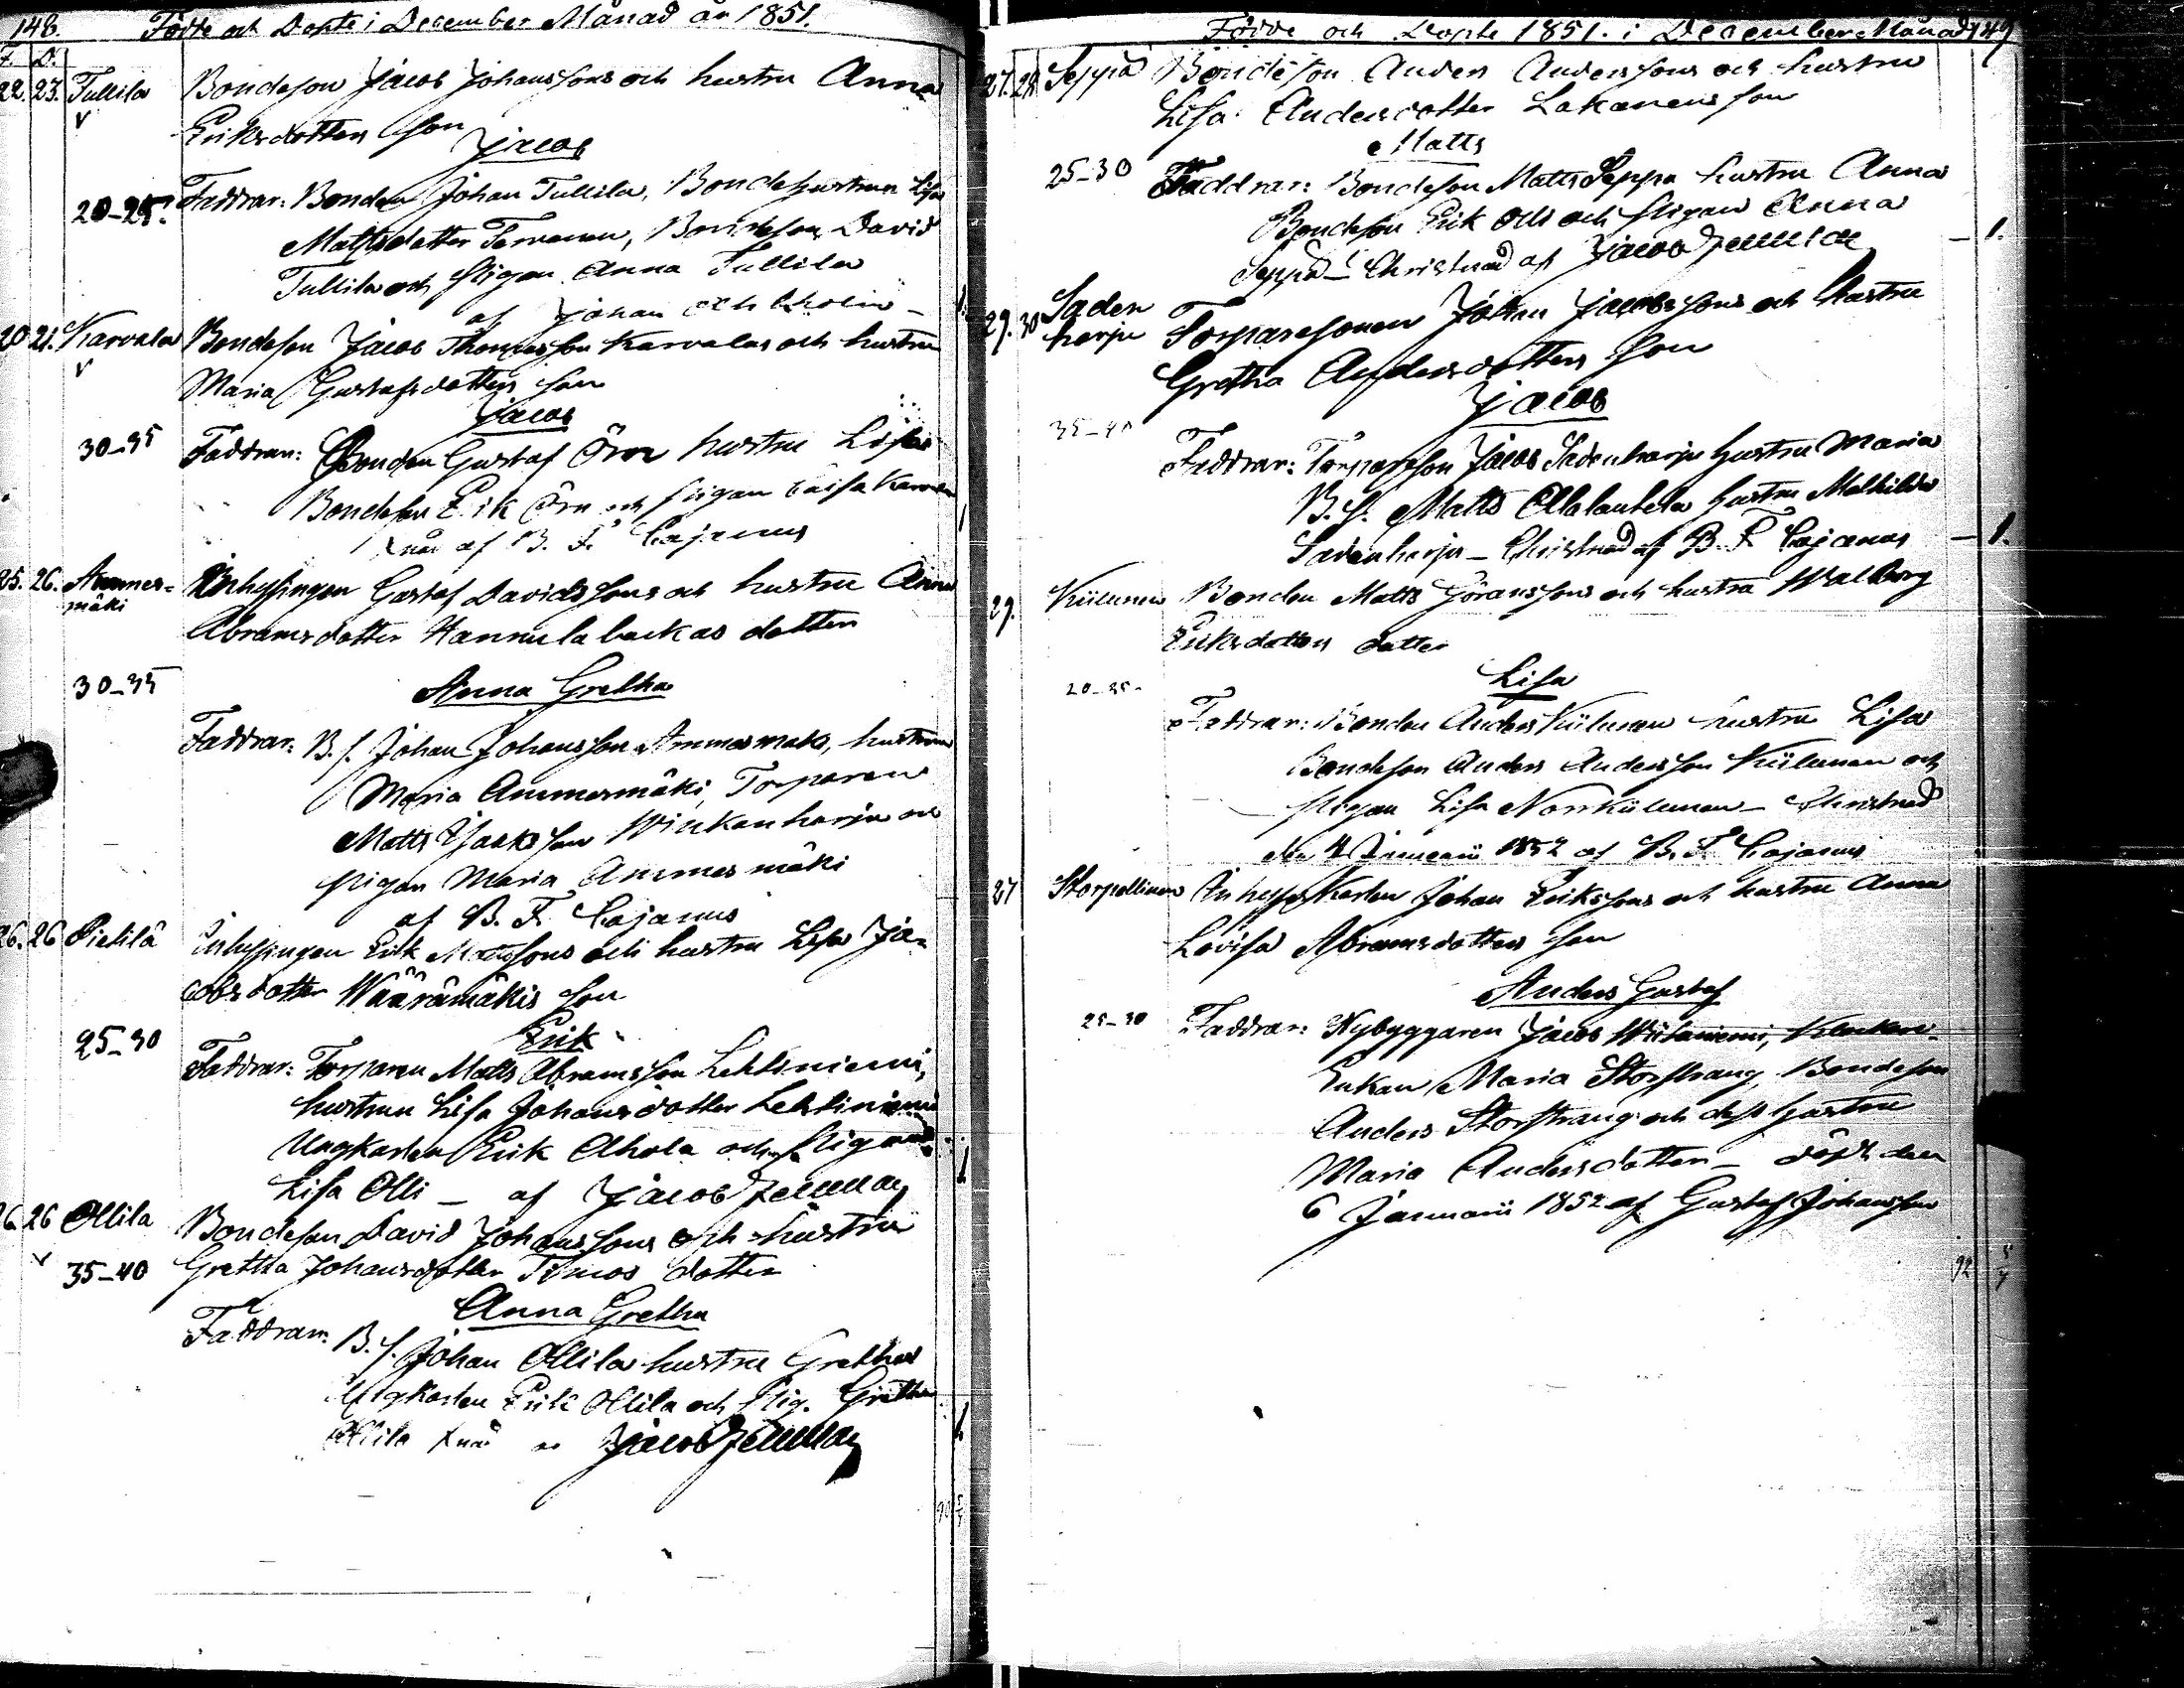 148. Födde och Döpte i December Månad år 1851.
F. D.
22. 23. Tullila Bondeson Jacob Johanssons och hustru Anna
v Eriksdotters son
Jacob
20-25. Faddrar: Bonden Johan Tullila, Bondehustrun Lisa
Mattsdotter Tervonen, Bondeson David
Tullila och Pigan Anna Tullila
af Johan
20 21. Karvala Bondeson Jacob Thomasson Karvalas och hustru
v Maria Gustafsdotters son
Jacob
30-35 Faddrar: Bonden Gustaf Örn hustru Lisa
Bondeson Erik Örn och pigan Caisa
Xnad af B. F. Cajanus
25. 26. Ammes= Inhysingen Gustaf Davidssons och hustru Anna
mäki Abramsdotter Hannulabackas dotter
30-35 Anna Gretha
Faddrar: B. s. Johan Johansson Ammesmäki, hustrun
Maria Ammesmäki, Torparen
Matts Jacksson Winkanharju och
pigan Maria Ammesmäki
af B. F. Cajanus
26. 26 Pietilä Inhysingen Erik Mattssons och hustru Lisa Ja=
cobsdotter Wäärämäkis son
Erik
25-30 Faddrar: Torparen Matts Abramsson Lehtiniemi,
hustrun Lisa Johansdotter Lehtiniemi
Ungkarlen Erik Ahola och Pigan
Lisa Olli - af Jacob Jellman
26 26 Ollila Bondeson David Johanssons och hustru
v 35-40 Gretha Johansdotter Timos dotter
Anna Gretha
Faddrar: B. s. Johan Ollila hustru Gretha
Ungkarlen Erik Ollila och Pig. Gretha
Ollila Xnad af Jacob Jellman
Födde och Döpte 1851. i December Månad 149
27. 28 Seppä Bondeson Anders Anderssons och hustru
Lisa Andersdotter Lakanens son
Matts
25-30 Faddrar: Bondeson Matts Seppä hustru Anna
Bondeson Erik Olli och Pigan Anna
Seppä - Christnad af Jacob Jellman - 1.
29. 30 Saden Torparesonen Johan Jacobssons och hustru
harju Gretha Andersdotters son
Jacob
35-40 Faddrar: Torpareson Jacob Sadenharju hustru Maria
B. S. Matts Ollalankela hustru Mathilda
Sadenharju - Christnad af B. F. Cajanus - 1.
29. Kiilunen Bonden Matts Göranssons och hustru Walborg
Eriksdotters dotter
Lisa
20-25- Faddrar: Bonden Anders Kiilunen hustru Lisa
Bondeson Anders Andersson Kiilunen och
Pigan Lisa Norrkiilunen - Christnad
den 4 Januarii 1852 af B. F. Cajanus
27 Storpellinen Inhyses Karlen Johan Erikssons och hustru Anna
Lovisa Abramsdotters son
Anders Gustaf
25-30 Faddrar: Nybyggaren Jacob Wiitaniemi,
Enkan Maria Storstrang, Bondeson
Anders Storstrang och dess hustru
Maria Andersdotter - döpt den
6 Januarii 1852 af Gustaf Johansson